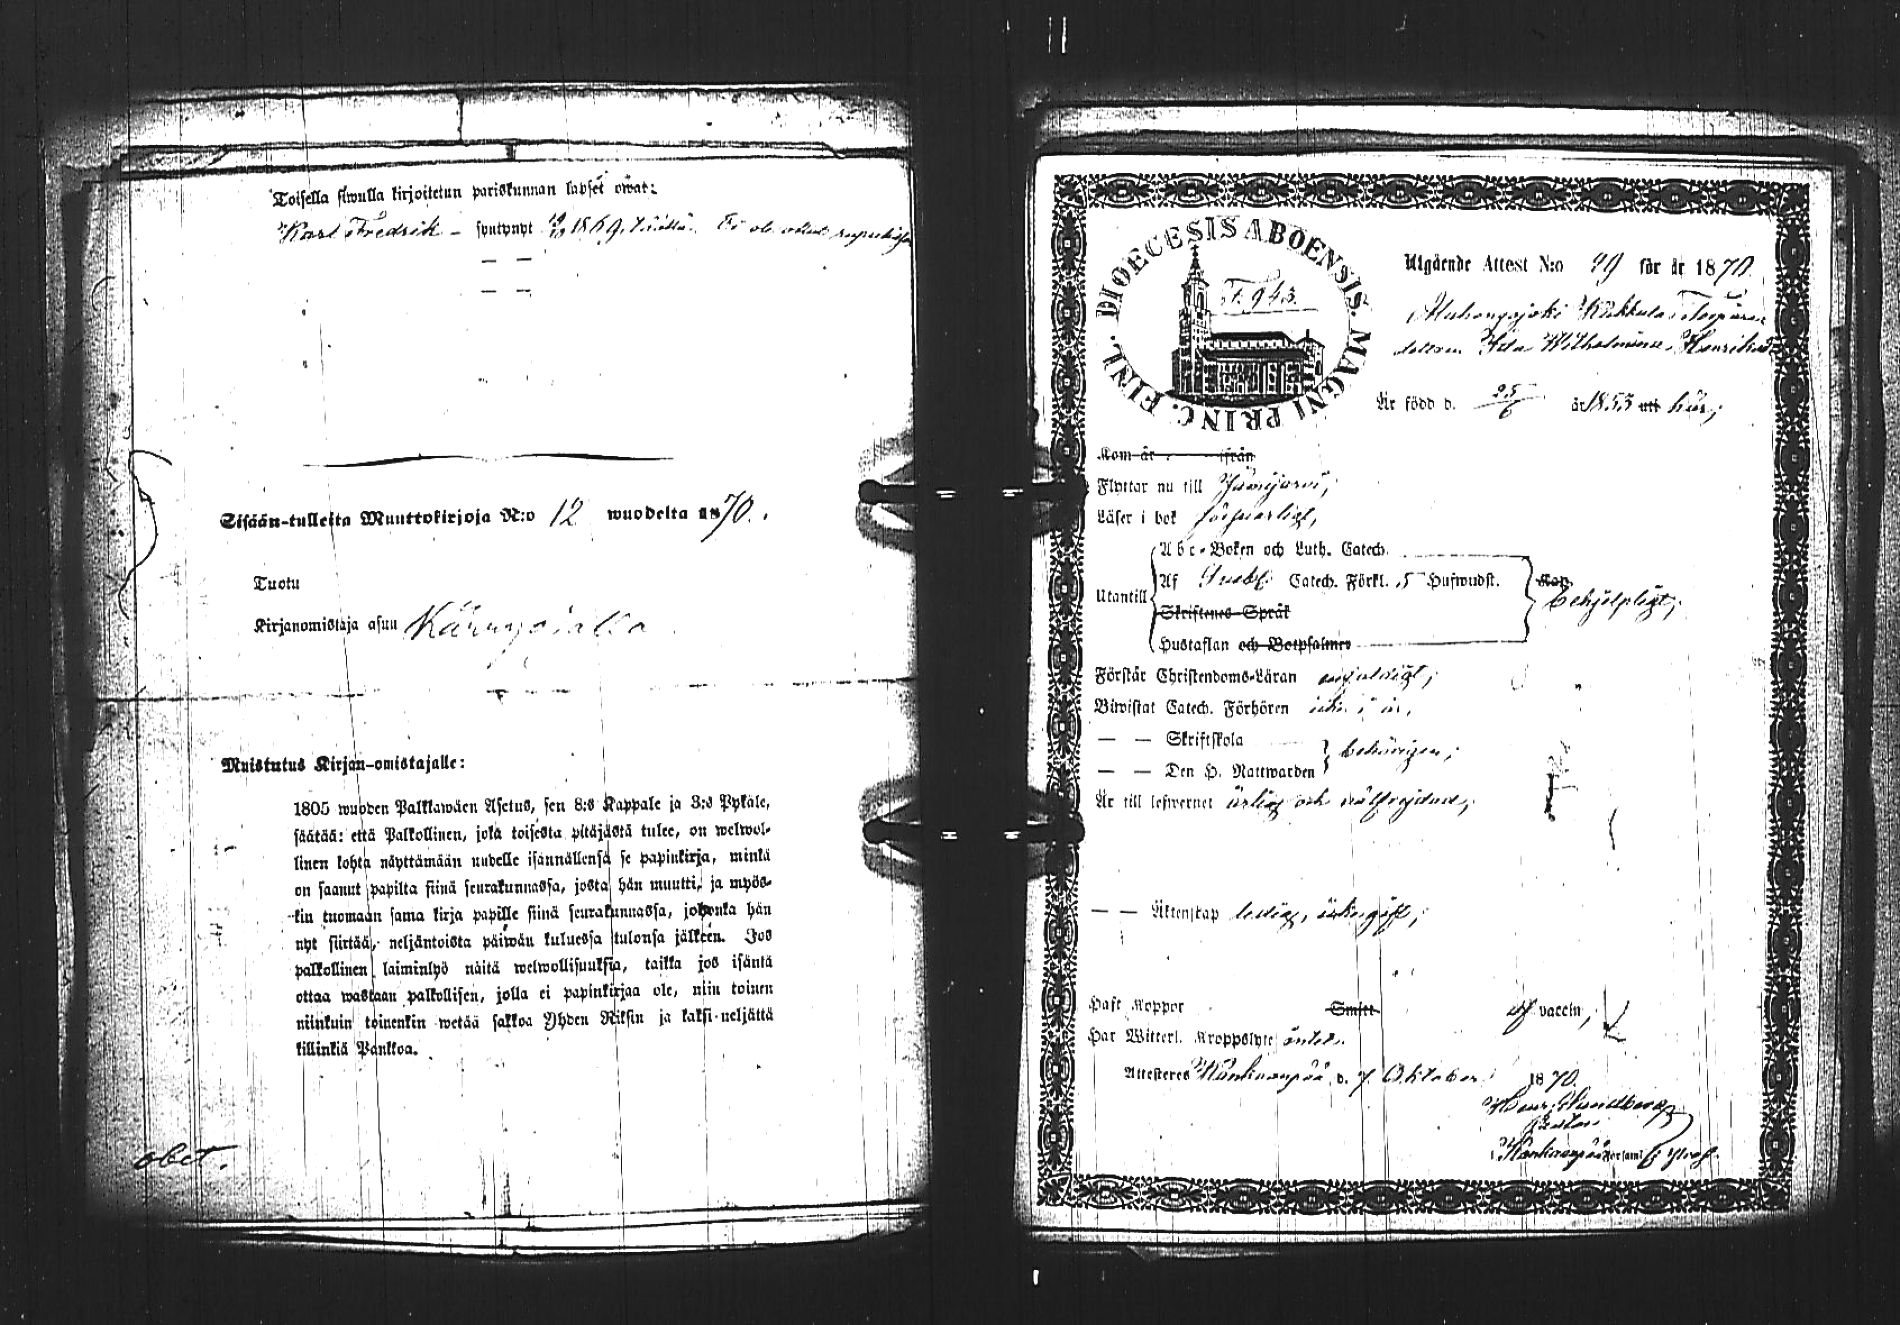 Toisella siwulla kirjoitetun pariskunnan lapset owat:
Karl Fredrik – syntynyt 1869. täällä. Ei ole ollut
— —
— —
Sisään-tulleita Muuttokirjoja N:o 12 wuodelta 1870.
Tuotu
Kirjanomistaja asuu
Muistutus Kirjan-omistajalle:
1805 wuoden Palkkawäen Asetus, sen 8:s Kappale ja 3:s Pykäle,
säätää: että Palkollinen, joka toisesta pitäjästä tulee, on welwol-
linen kohta näyttämään uudelle isännällensä se papinkirja, minkä
on saanut papilta siinä seurakunnassa, josta hän muutti, ja myös-
kin tuomaan sama kirja papille siinä seurakunnassa, johonka hän
nyt siirtää, neljäntoista päiwän kuluessa tulonsa jälkeen. Jos
palkollinen laiminlyö näitä welwollisuuksia, taikka jos isäntä
ottaa wastaan palkollisen, jolla ei papinkirjaa ole, niin toinen
niinkuin toinenkin wetää sakkoa Yhden Riksin ja kaksi-neljättä
killinkiä Pankkoa.
obit.
DIOECESIS ABOENSIS. MAGNI PRINC. FINL.
T. 943.
Utgående Attest N:o 99 för år 1870.
Kukkula
Ida Wilhelmina Henriks
Är född d. 25/6 år 1853 uti här;
Kom år ifrån
Flyttar nu till Jämijärvi;
Läser i bok försvarligt,
Utantill
Abc-Boken och Luth. Catech.
Af Catech. Förkl. 5 Hufwudst.
Skriftenes Språk
Hustaflan och Botpsalmer
behjelpligt;
Förstår Christendoms-Läran enfaldigt;
Biwistat Catech. Förhören icke i år,
— — Skriftskola
— — Den H. Nattwarden
behörigen;
Är till lefwernet ärlig och välfrejdad,
— — Äktenskap ledig,
Haft Koppor Smitt af vaccin;
Har Witterl. Kroppslyte
Attesteras Kankaanpää d. 7 Oktober 1870.
Henr. Sundberg
Pastor
i Kankaanpää Församl.